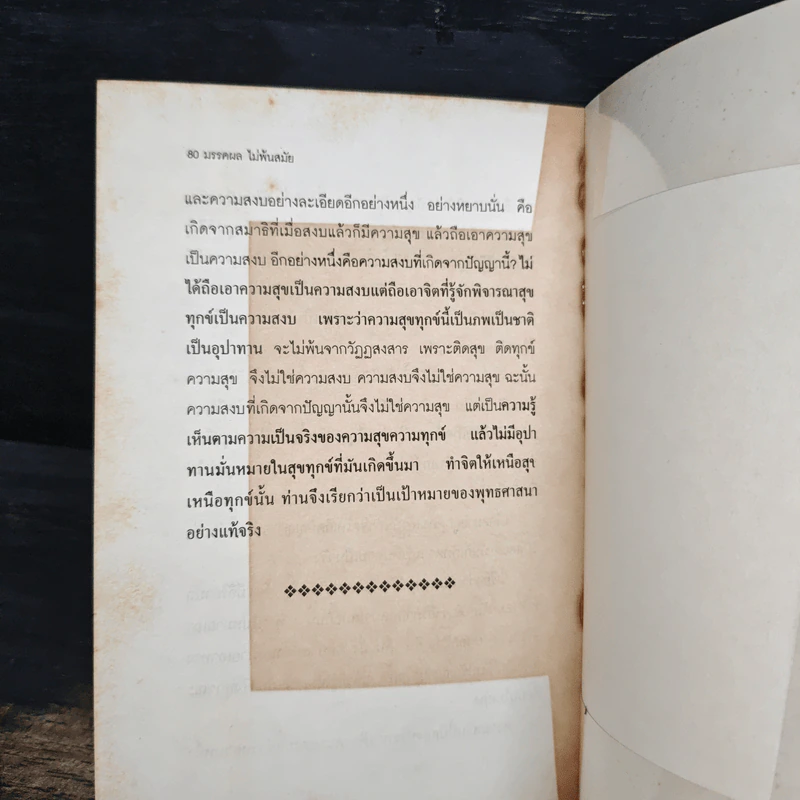 80 มรรคผล ไม่พ้นสมัย
และความสงบอย่างละเอียดอีกอย่างหนึ่ง อย่างหยาบนั่น คือ
เกิดจากสมาธิที่เมื่อสงบแล้วก็มีความสุข แล้วถือเอาความสุข
เป็นความสงบ อีกอย่างหนึ่งคือความสงบที่เกิดจากปัญญานี้? ไม่
ได้ถือเอาความสุขเป็นความสงบแต่ถือเอาจิตที่รู้จักพิจารณาสุข
ทุกข์เป็นความสงบ เพราะว่าความสุขทุกข์นี้เป็นภพเป็นชาติ
เป็นอุปาทาน จะไม่พ้นจากวัฏฏสงสาร เพราะติดสุข ติดทุกข์
ความสุข จึงไม่ใช่ความสงบ ความสงบจึงไม่ใช่ความสุข ฉะนั้น
ความสงบที่เกิดจากปัญญานั้นจึงไม่ใช่ความสุข แต่เป็นความรู้
เห็นตามความเป็นจริงของความสุขความทุกข์ แล้วไม่มีอุปา
ทานมั่นหมายในสุขทุกข์ที่มันเกิดขึ้นมา ทำจิตให้เหนือสุข
เหนือทุกข์นั้น ท่านจึงเรียกว่าเป็นเป้าหมายของพุทธศาสนา
อย่างแท้จริง